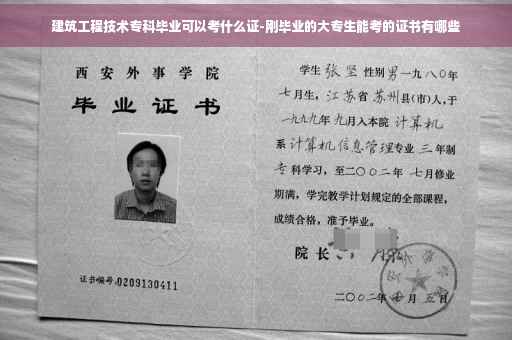 建筑工程技术专科毕业可以考什么证-刚毕业的大专生能考的证书有哪些
西安外事学院
毕业证书
证书编号:0209130411
学生 张坚 性别 男 一九八〇年
七月生，江苏省 苏州县(市)人，于
一九九九年 九月入本院 计算机
系 计算机信息管理专业 三 年制
专科学习，至二〇〇二年 七月修业
期满，学完教学计划规定的全部课程，
成绩合格，准予毕业。
院长
二〇〇二年 月 五日